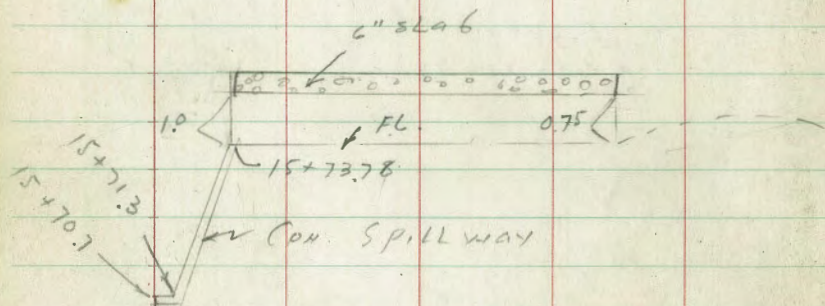 6" slab
1.0
FL.
0.75
15+73.78
15+71.3
15+70.7
Con. Spillway